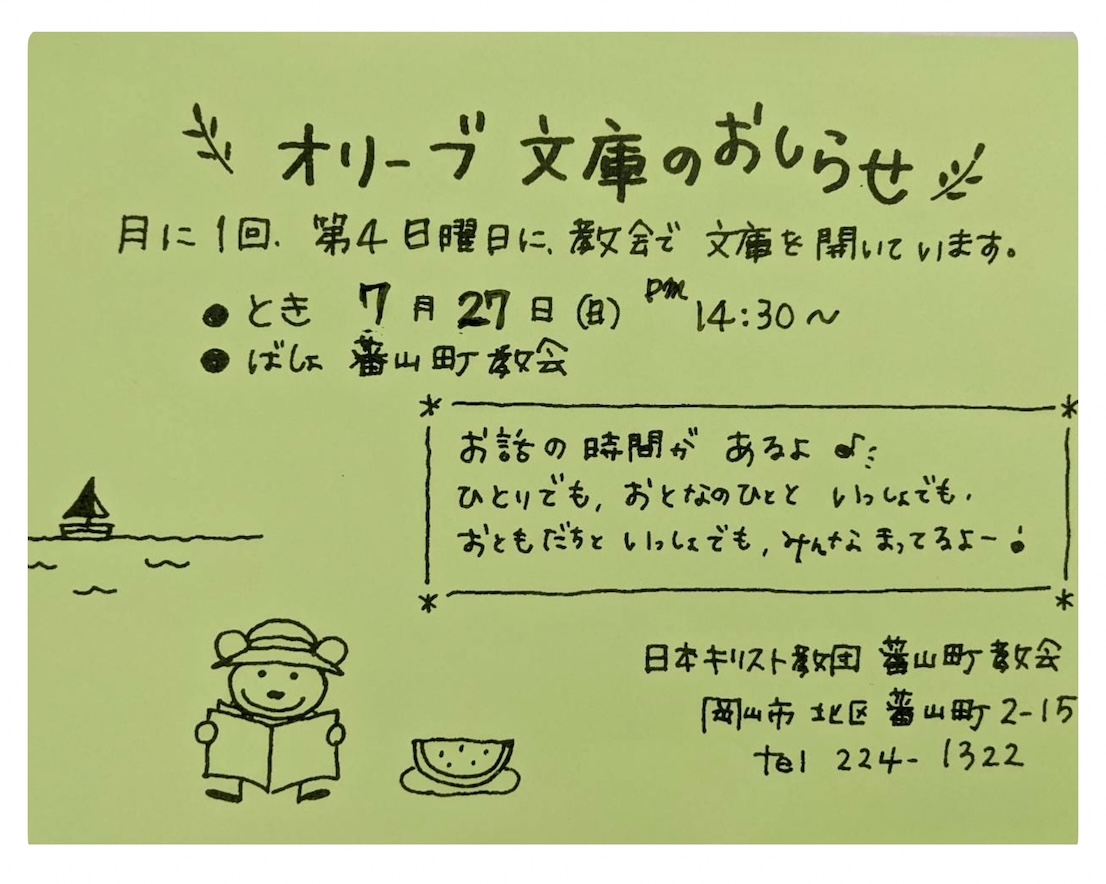 オリーブ文庫のおしらせ
月に1回、第4日曜日に、教会で文庫を開いています。
● とき 7月27日(日) pm 14:30〜
● ばしょ 蕃山町教会
お話の時間が あるよ♪
ひとりでも、おとなのひとと いっしょでも、
おともだちと いっしょでも、みんな まってるよー!
日本キリスト教団 蕃山町教会
岡山市 北区 蕃山町2-15
tel 224-1322